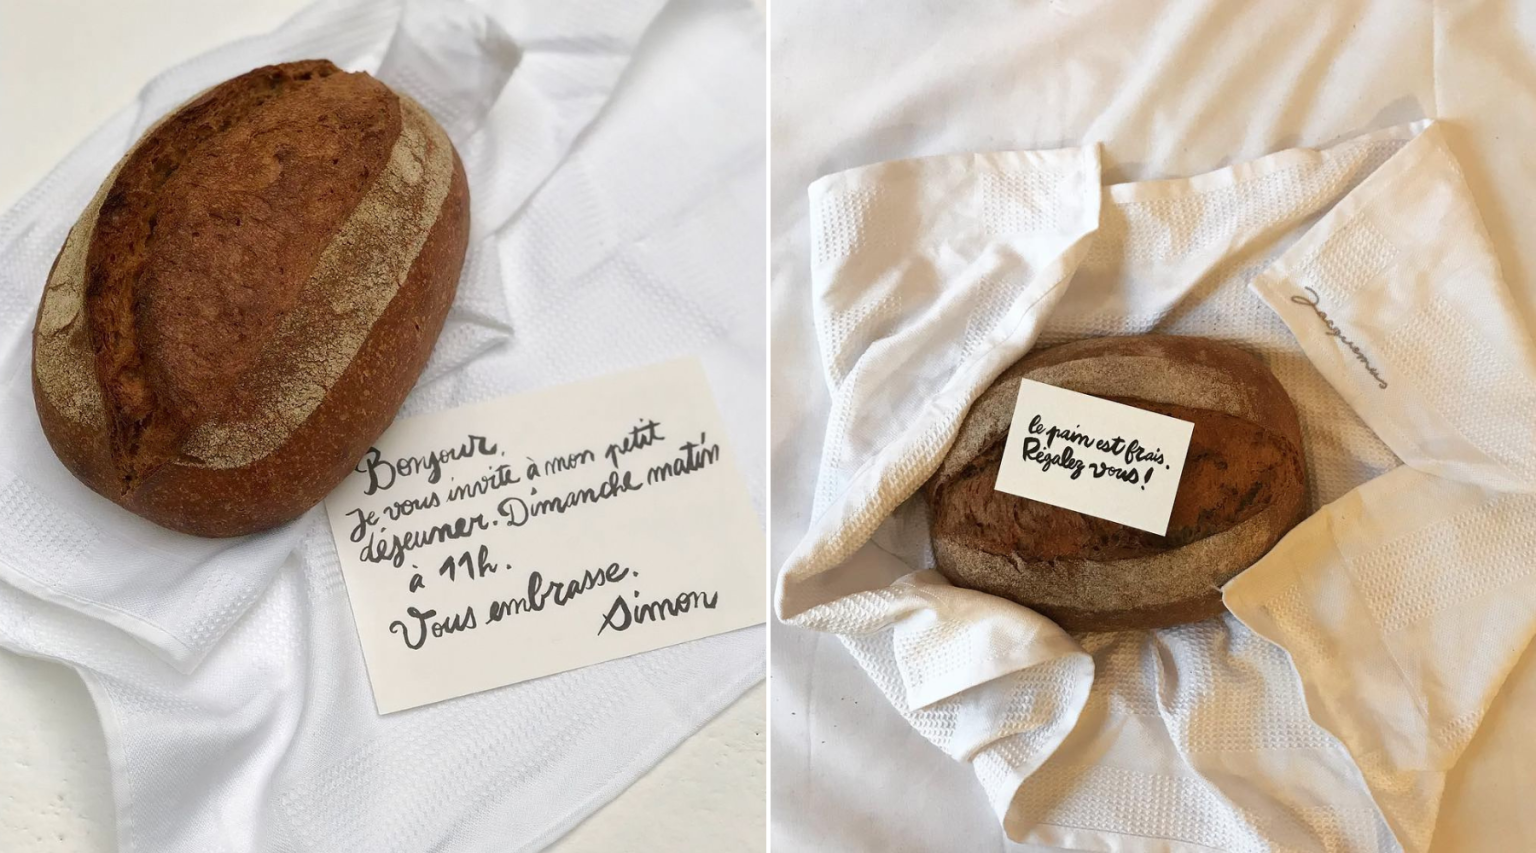 Bonjour,
Je vous invite à mon petit
déjeuner. Dimanche matin
à 11h.
Vous embrasse.
Simon
le pain est frais.
Régalez vous!
Jacquemus